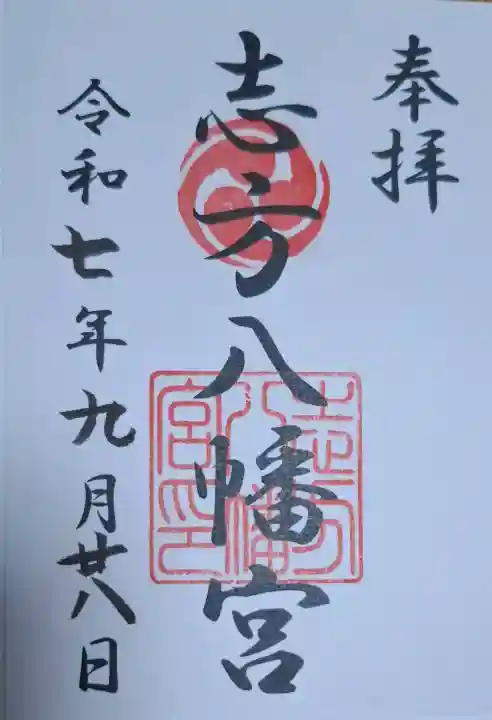 奉拝
志方八幡宮
志方八幡宮印
令和七年九月廿八日